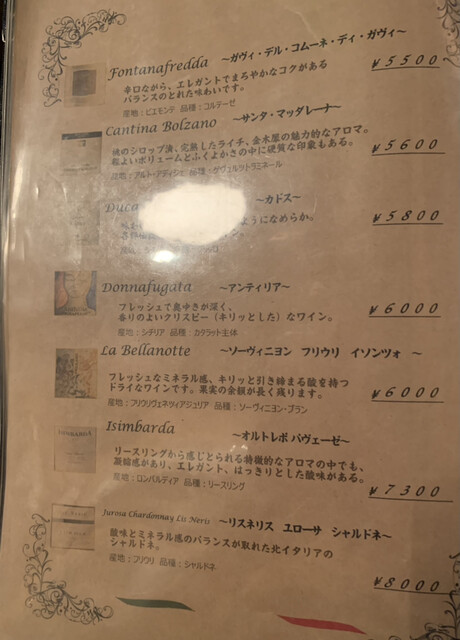 Fontanafredda ～ガヴィ・デル・コムーネ・ディ・ガヴィ～
¥5500
辛口ながら、エレガントでまろやかなコクがある
バランスのとれた味わいです。
産地：ピエモンテ 品種：コルテーゼ
Cantina Bolzano ～サンタ・マッダレーナ～
桃のシロップ漬、完熟したライチ、金木犀の魅力的なアロマ。
程よいボリュームとふくよかさの中に硬質な印象もある。
¥5600
産地：アルト・アディジェ 品種：ゲヴュルットラミネール
Duca ～カドス～
ようになめらか。
¥5800
Donnafugata ～アンティリア～
フレッシュで奥ゆきが深く、
香りのよいクリスピー（キリッとした）なワイン。
¥6000
産地：シチリア 品種：カタラット主体
La Bellanotte ～ソーヴィニヨン フリウリ イソンツォ ～
フレッシュなミネラル感、キリッと引き締まる酸を持つ
ドライなワインです。果実の余韻が長く残ります。
¥6000
産地：フリウリヴェネツィアジュリア 品種：ソーヴィニヨン・ブラン
Isimbarda ～オルトレポ パヴェーゼ～
リースリングから感じとられる特徴的なアロマの中でも、
凝縮感があり、エレガント、はっきりとした酸味がある。
産地：ロンバルディア 品種：リースリング
¥7300
Jurosa Chardonnay Lis Neris ～リスネリス ユローサ シャルドネ～
酸味とミネラル感のバランスが取れた北イタリアの
シャルドネ。
産地：フリウリ 品種：シャルドネ
¥8000